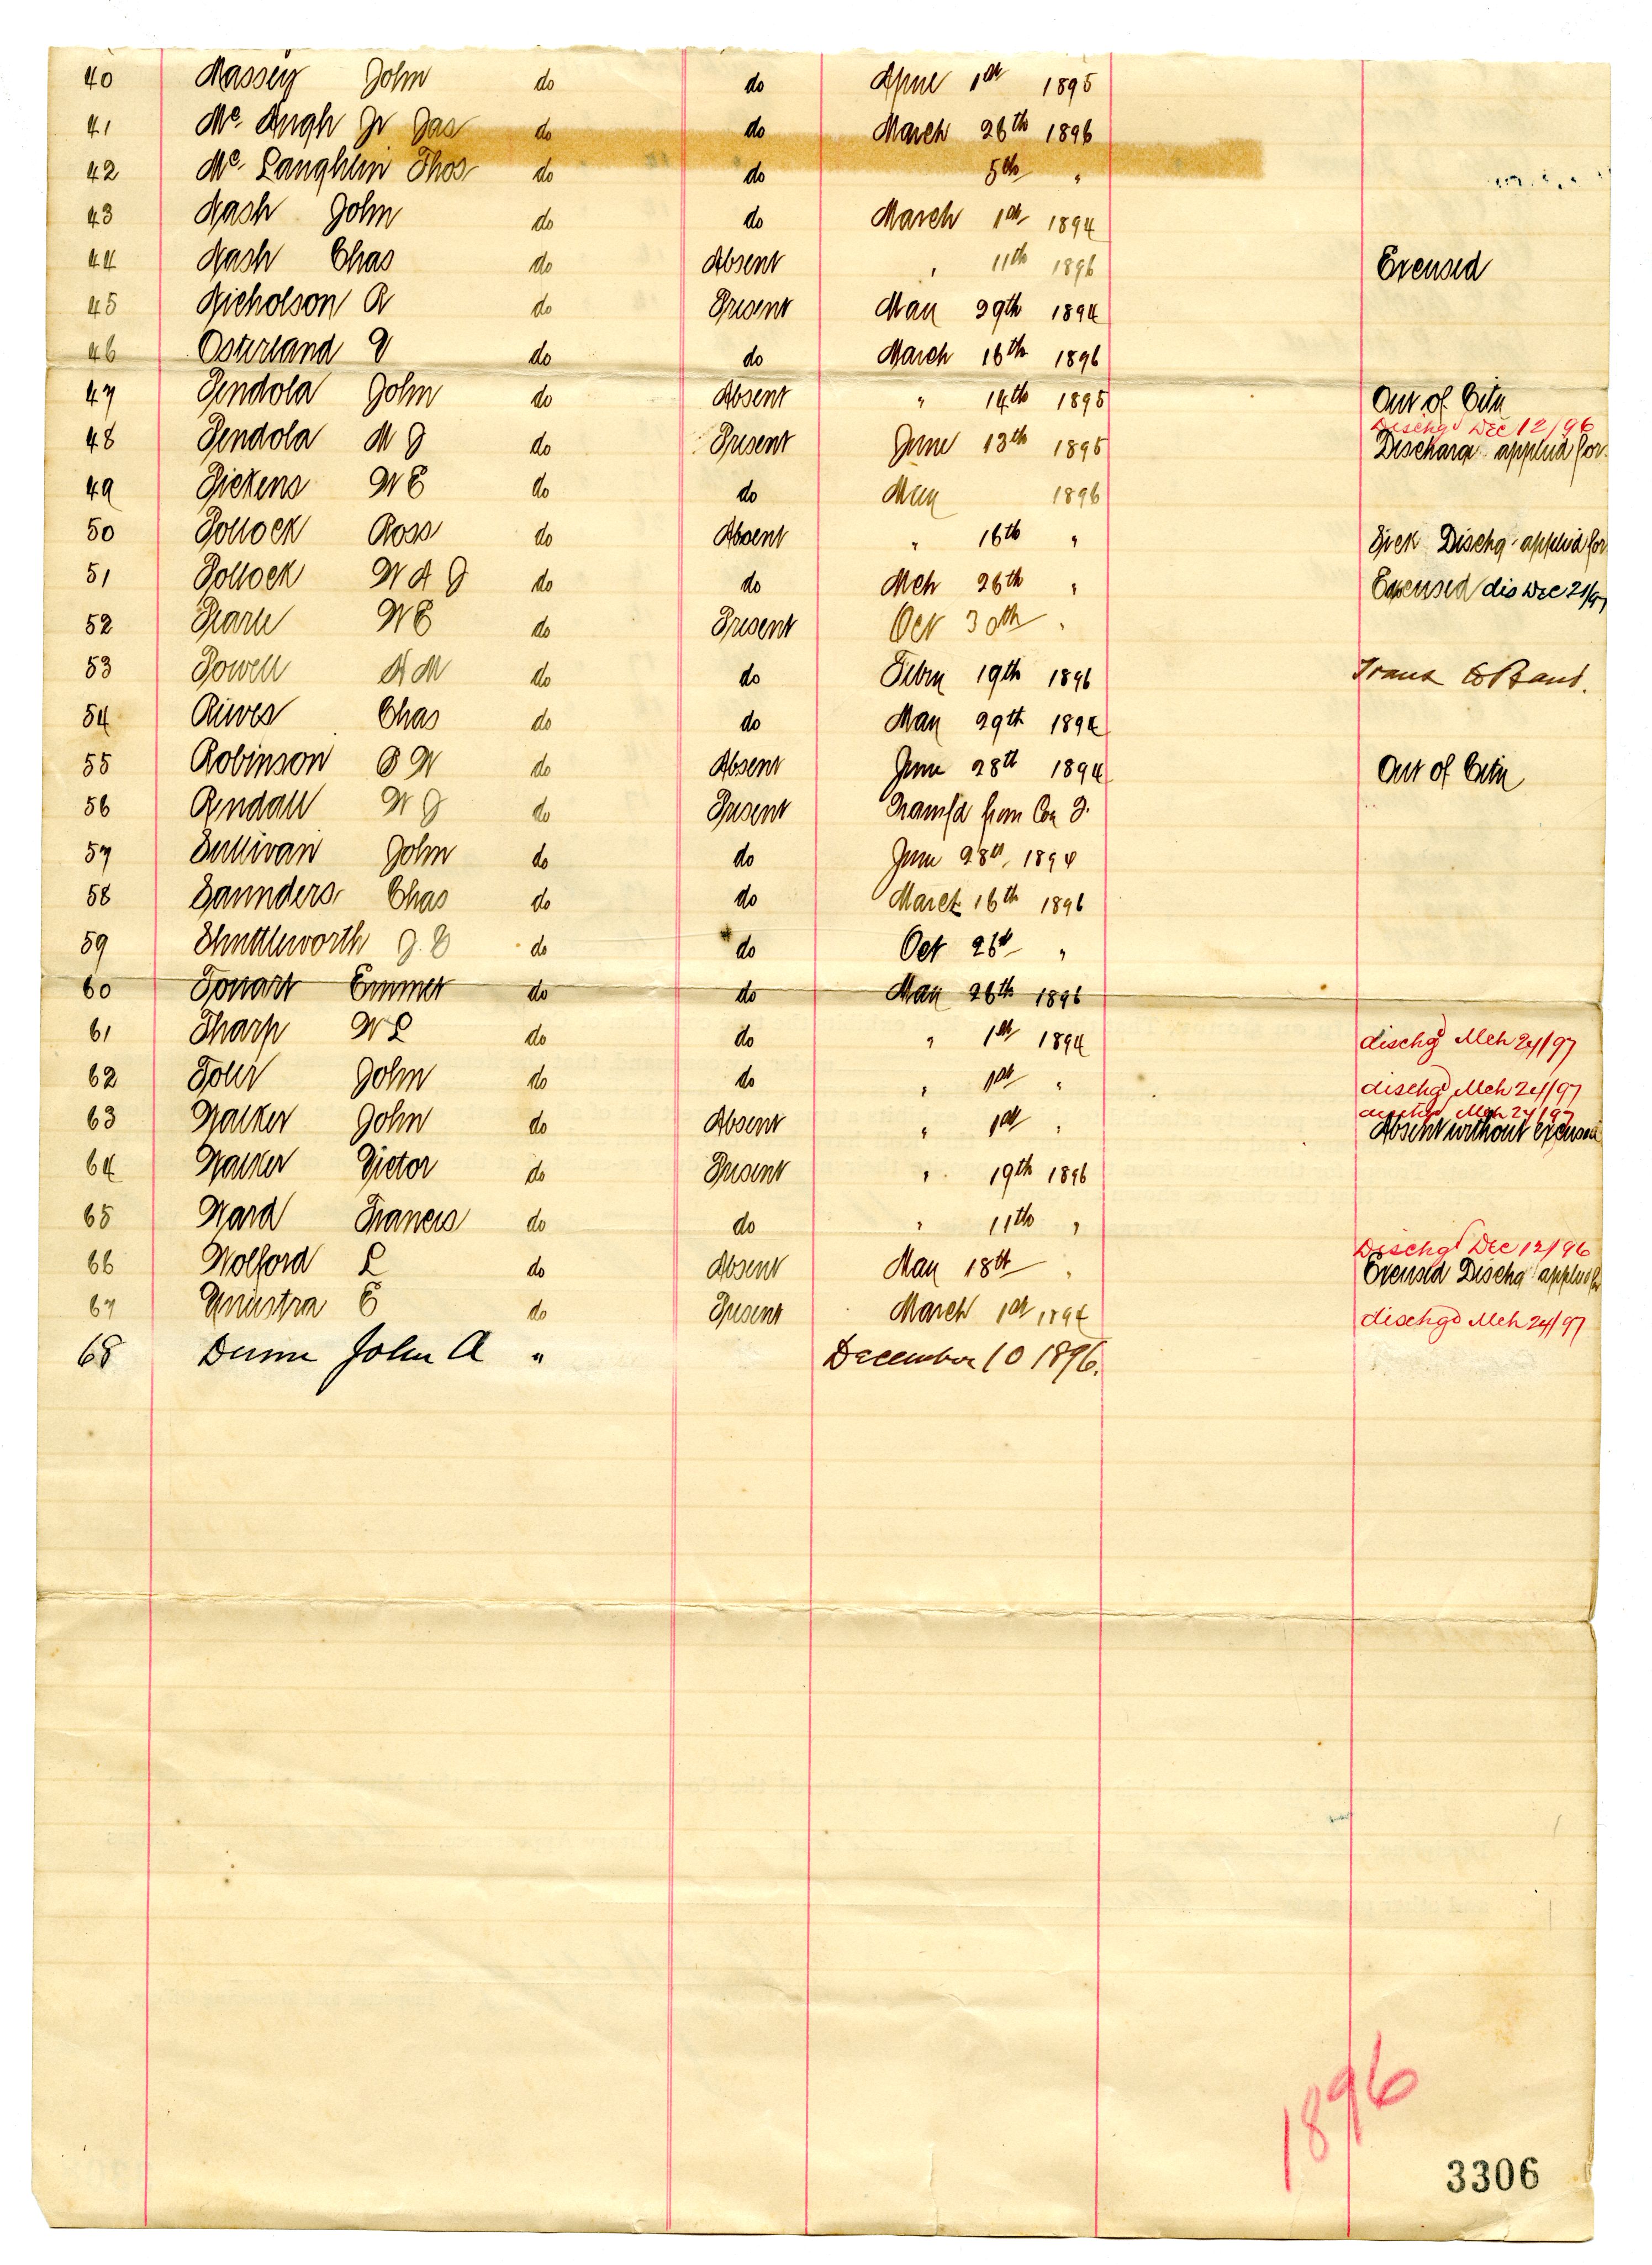 40 Massey John do do April 1st 1895
41 Mc Hugh Jr Jas do do March 26th 1896
42 Mc Laughlin Thos do do 5th "
43 Nash John do do March 1st 1894
44 Nash Chas do Absent " 11th 1896 Excused
45 Nicholson R do Present May 29th 1894
46 Osterland do do March 16th 1896
47 Pendola John do Absent " 14th 1895 Out of City
Dischgd Dec 12/96
48 Pendola M J do Present June 13th 1895 Discharge applied for
49 Pickens W E do do May 1896
50 Pollock Ross do Absent " 16th " Sick Dischg applied for
51 Pollock W A J do do Mch 26th " Excused dis Dec 21/97
52 W E do Present Oct 30th "
53 Powell A M do do Febry 19th 1896 Trans to Band.
54 Rives Chas do do May 29th 1894
55 Robinson B W do Absent June 28th 1894 Out of City
56 Rendall W J do Present Transfd from Co
57 Sullivan John do do June 28th 1894
58 Saunders Chas do do March 16th 1896
59 Shuttleworth J. E do do Oct 26th "
60 Towart Emmet do do May 26th 1896
61 Tharp W L do do " 1st 1894 dischgd Mch 24/97
62 John do do " 1st " dischgd Mch 24/97
dischgd Mch 24/97
63 Walker John do Absent " 1st " Absent without excuse
64 Walker Victor do Present " 19th 1896
65 Ward Francis do do " 11th "
Dischgd Dec 12/96
66 Wolford L do Absent May 18th " Excused Dischg applied for
67 E do Present March 1st 1894 dischgd Mch 24/97
68 Dunn John A " December 10 1896.
1896
3306